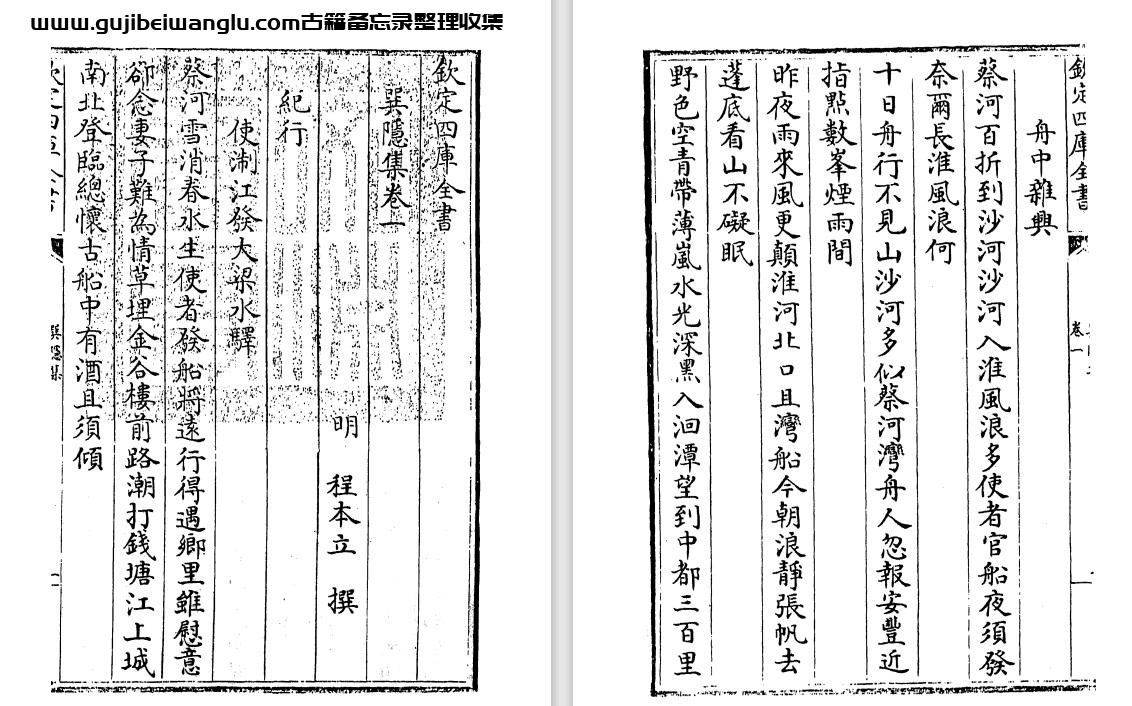 www.gujibeiwanglu.com古籍备忘录整理收集
欽定四庫全書
巽隱集卷一
明 程本立 撰
紀行
使淛江發大梁水驛
蔡河雪消春水生使者發船將遠行得遇鄉里雖慰意
卻念妻子難為情草埋金谷樓前路潮打錢塘江上城
南北登臨總懷古船中有酒且須傾
欽定四庫全書
巽隱集
欽定四庫全書
卷一
舟中雜興
蔡河百折到沙河沙河入淮風浪多使者官船夜須發
奈爾長淮風浪何
十日舟行不見山沙河多似蔡河灣舟人忽報安豐近
指點數峯煙雨間
昨夜雨來風更顛淮河北口且灣船今朝浪靜張帆去
蓬底看山不礙眠
野色空青帶薄嵐水光深黑入洄潭望到中都三百里